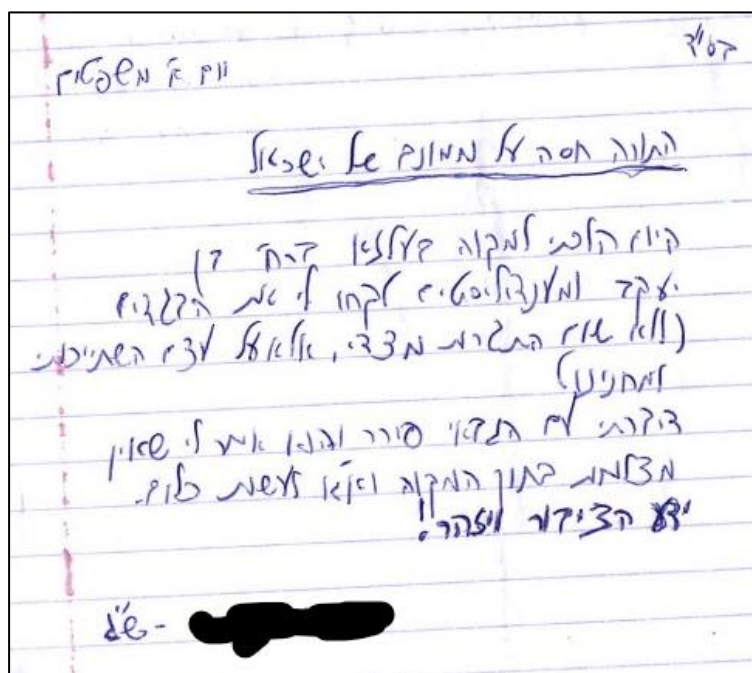 בס"ד
יום א' משפטים
התורה חסה על ממונם של ישראל
היום הלכתי למקוה בעלזא ברח' בן
יעקב ומענדליסטים לקחו לי את הבגדים
(ללא שום התגרות מצדי, אלא על עצם השתייכותי
למחנינו)
דיברתי עם הגבאי פירר והוא אמר לי שאין
מצלמות בתוך המקוה וא"א לעשות כלום.
ידע הציבור ויזהר!
- ש"ג